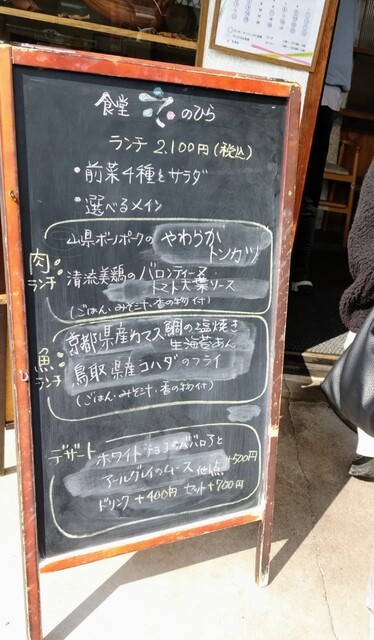 食堂 のひら
ランチ 2,100円(税込)
・前菜4種とサラダ
・選べるメイン
肉ランチ
山県ボーノポークの やわらか
トンカツ
清流美鶏のバロンティーヌ
トマト大葉ソース
(ごはん・みそ汁・香の物付)
魚ランチ
京都県産カマス鯛の塩焼き
生海苔あん
鳥取県産コハダのフライ
(ごはん・みそ汁・香の物付)
デザート
ホワイトチョコのババロアと
アールグレイのムース 他1点 +500円
ドリンク +400円 セット +700円